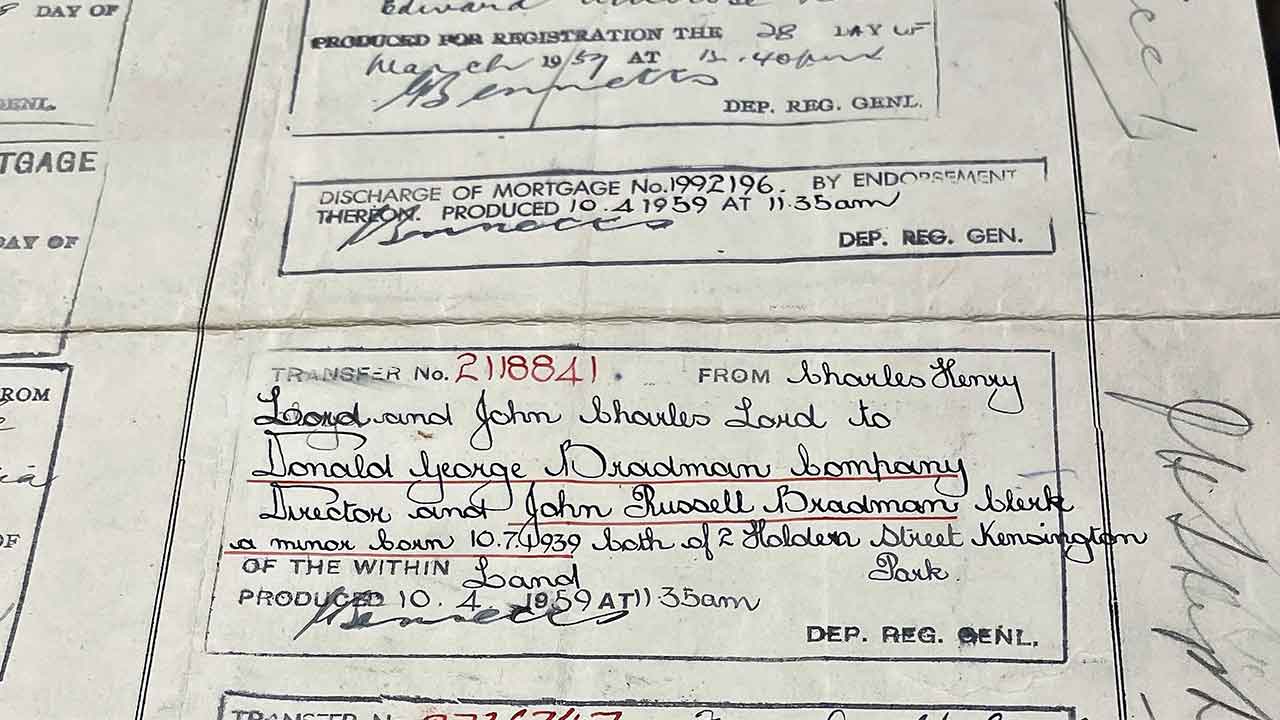 DAY OF
GENL.
TGAGE
DAY OF
ROM
OF
Edward
PRODUCED FOR REGISTRATION THE 28 DAY OF
March 1957 AT 12.40pm
Bennetts
DEP. REG. GENL.
DISCHARGE OF MORTGAGE No. 1992196. BY ENDORSEMENT
THEREON. PRODUCED 10.4 1959 AT 11.35am
Bennetts
DEP. REG. GEN.
TRANSFER No. 2118841. FROM Charles Henry
Lord and John Charles Lord to
Donald George Bradman Company
Director and John Russell Bradman Clerk
a minor born 10.7.1939 both of 2 Holden Street Kensington
Park.
OF THE WITHIN Land
PRODUCED 10.4 1959 AT 11.35am
Bennetts
DEP. REG. GENL.
TRANSFER N